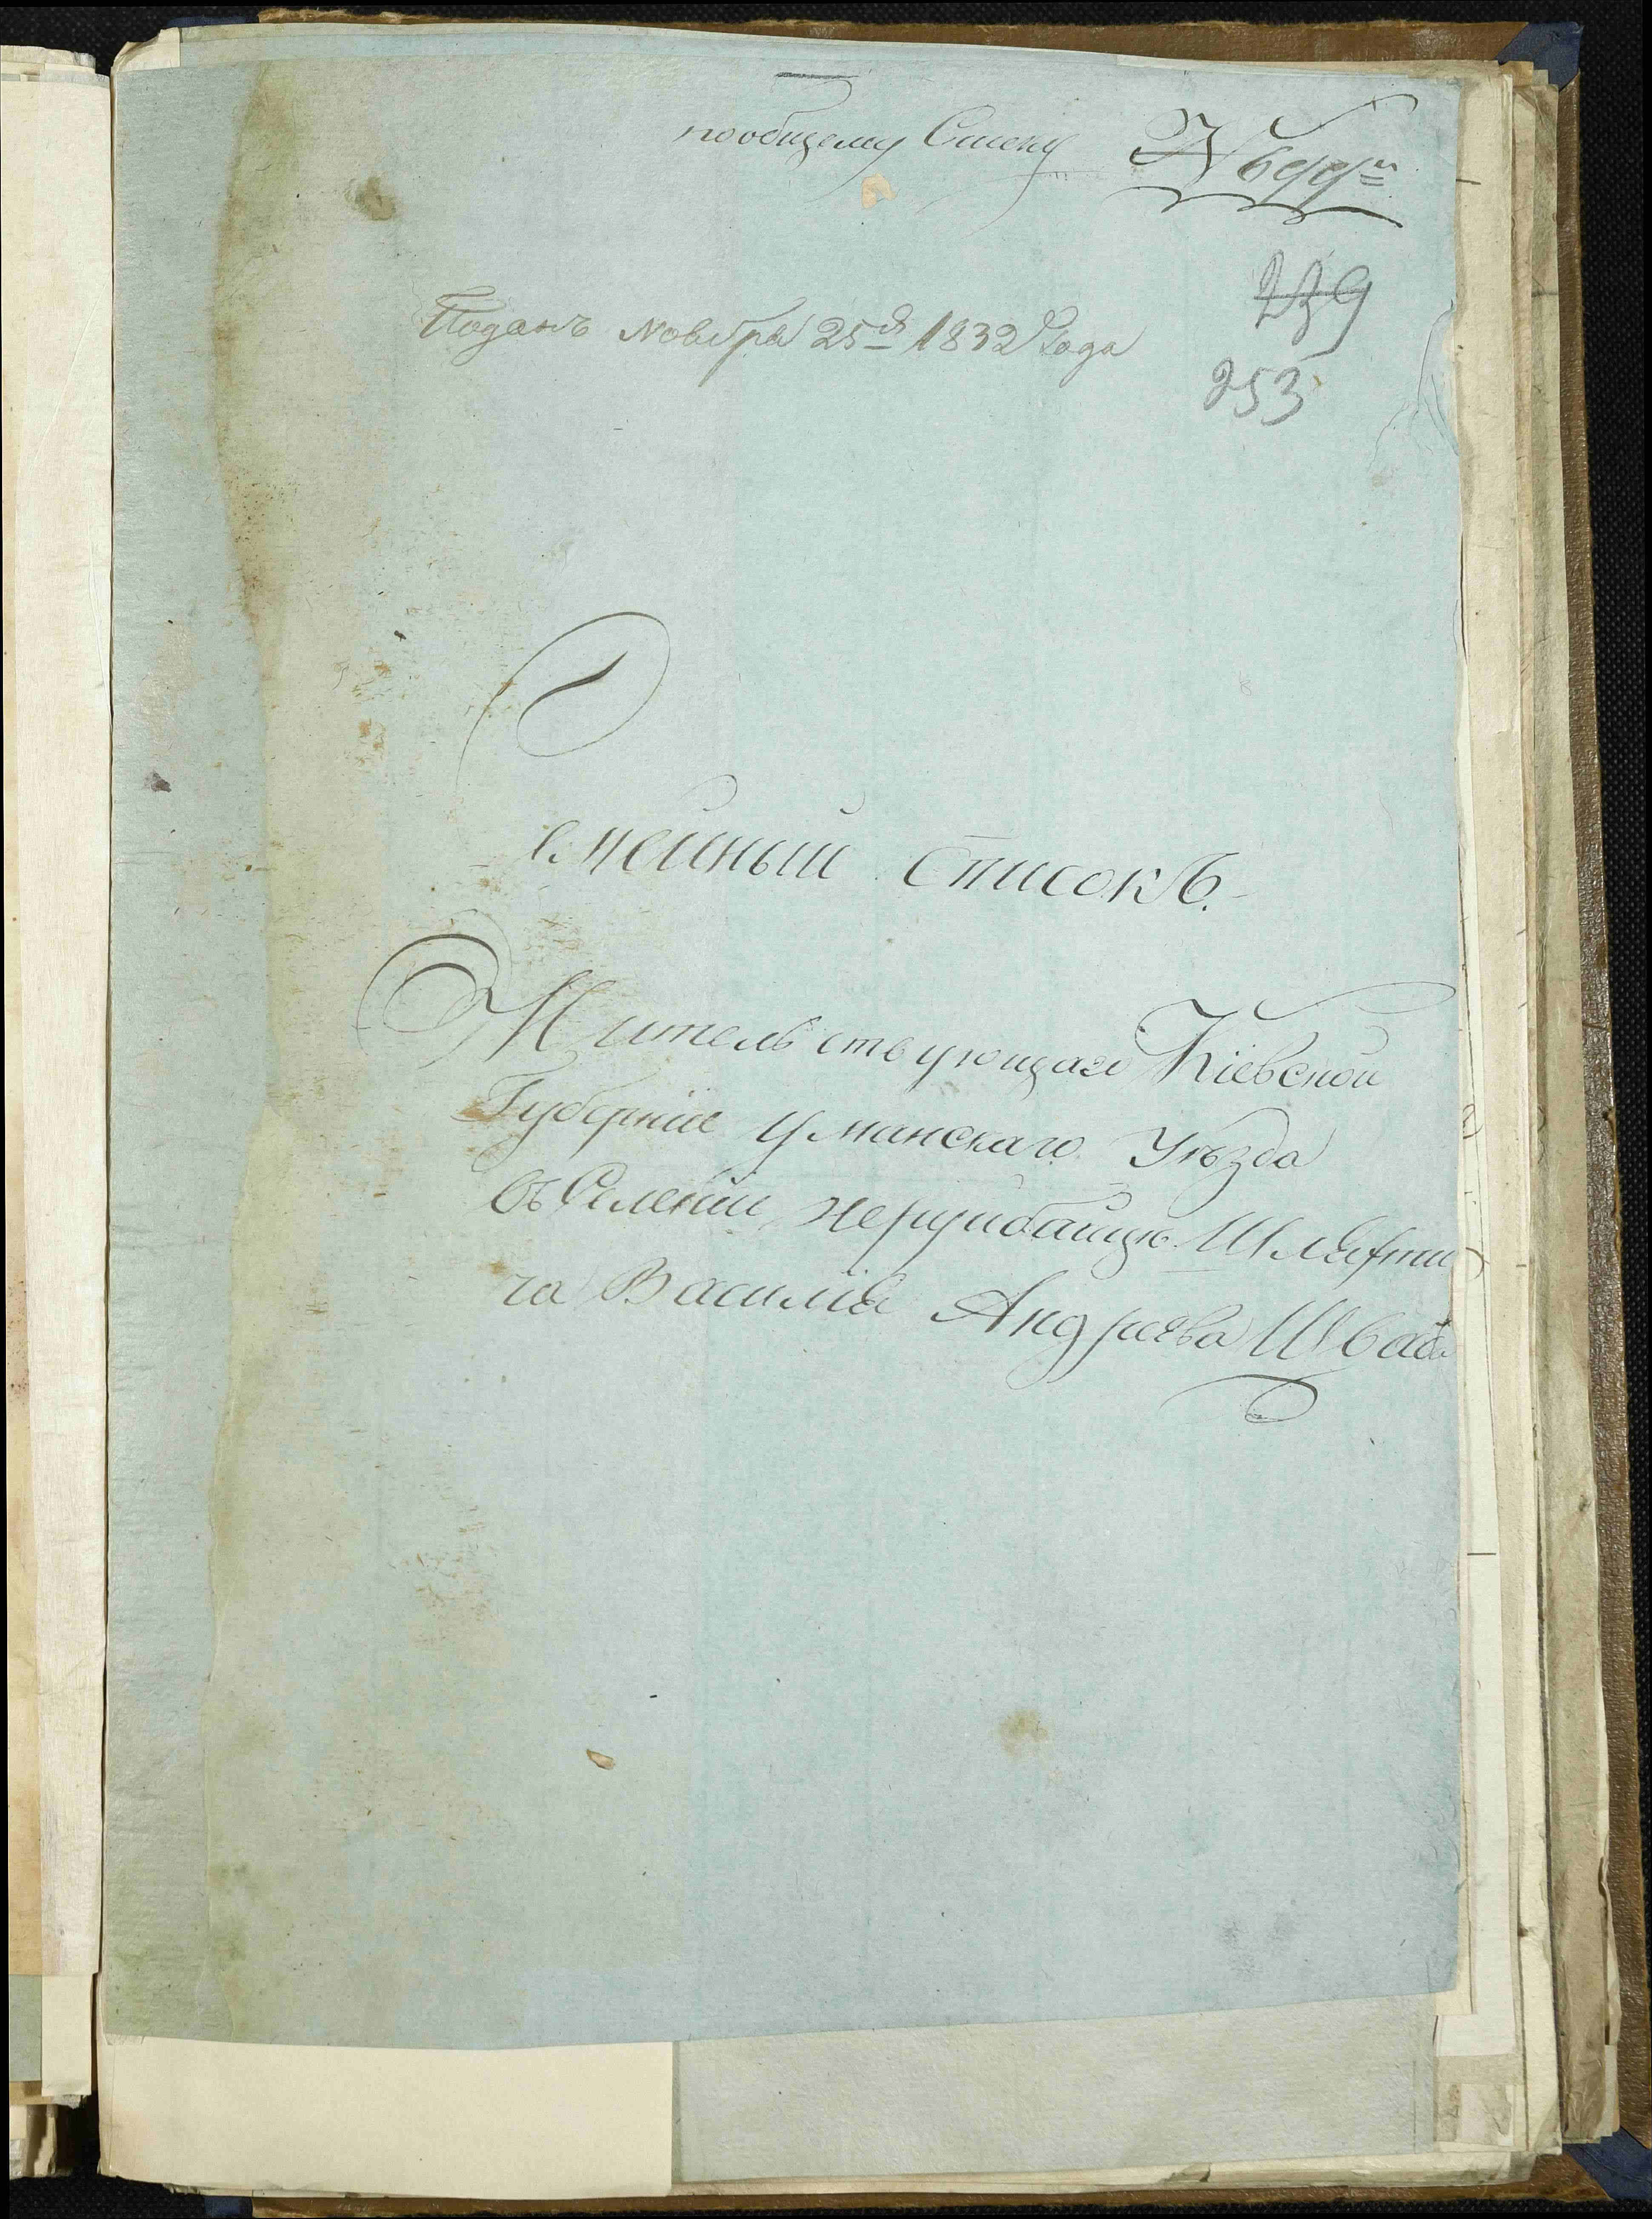 по общему Списку № 699й
239
Поданъ Ноября 25д 1832 Года
253
Семейный списокъ.
Жительствующаго Кіевской
Губерніи Уманскаго Уѣзда
въ Селеніи Нерубайцѣ Шляхти
ча Василія Андреева Шваб